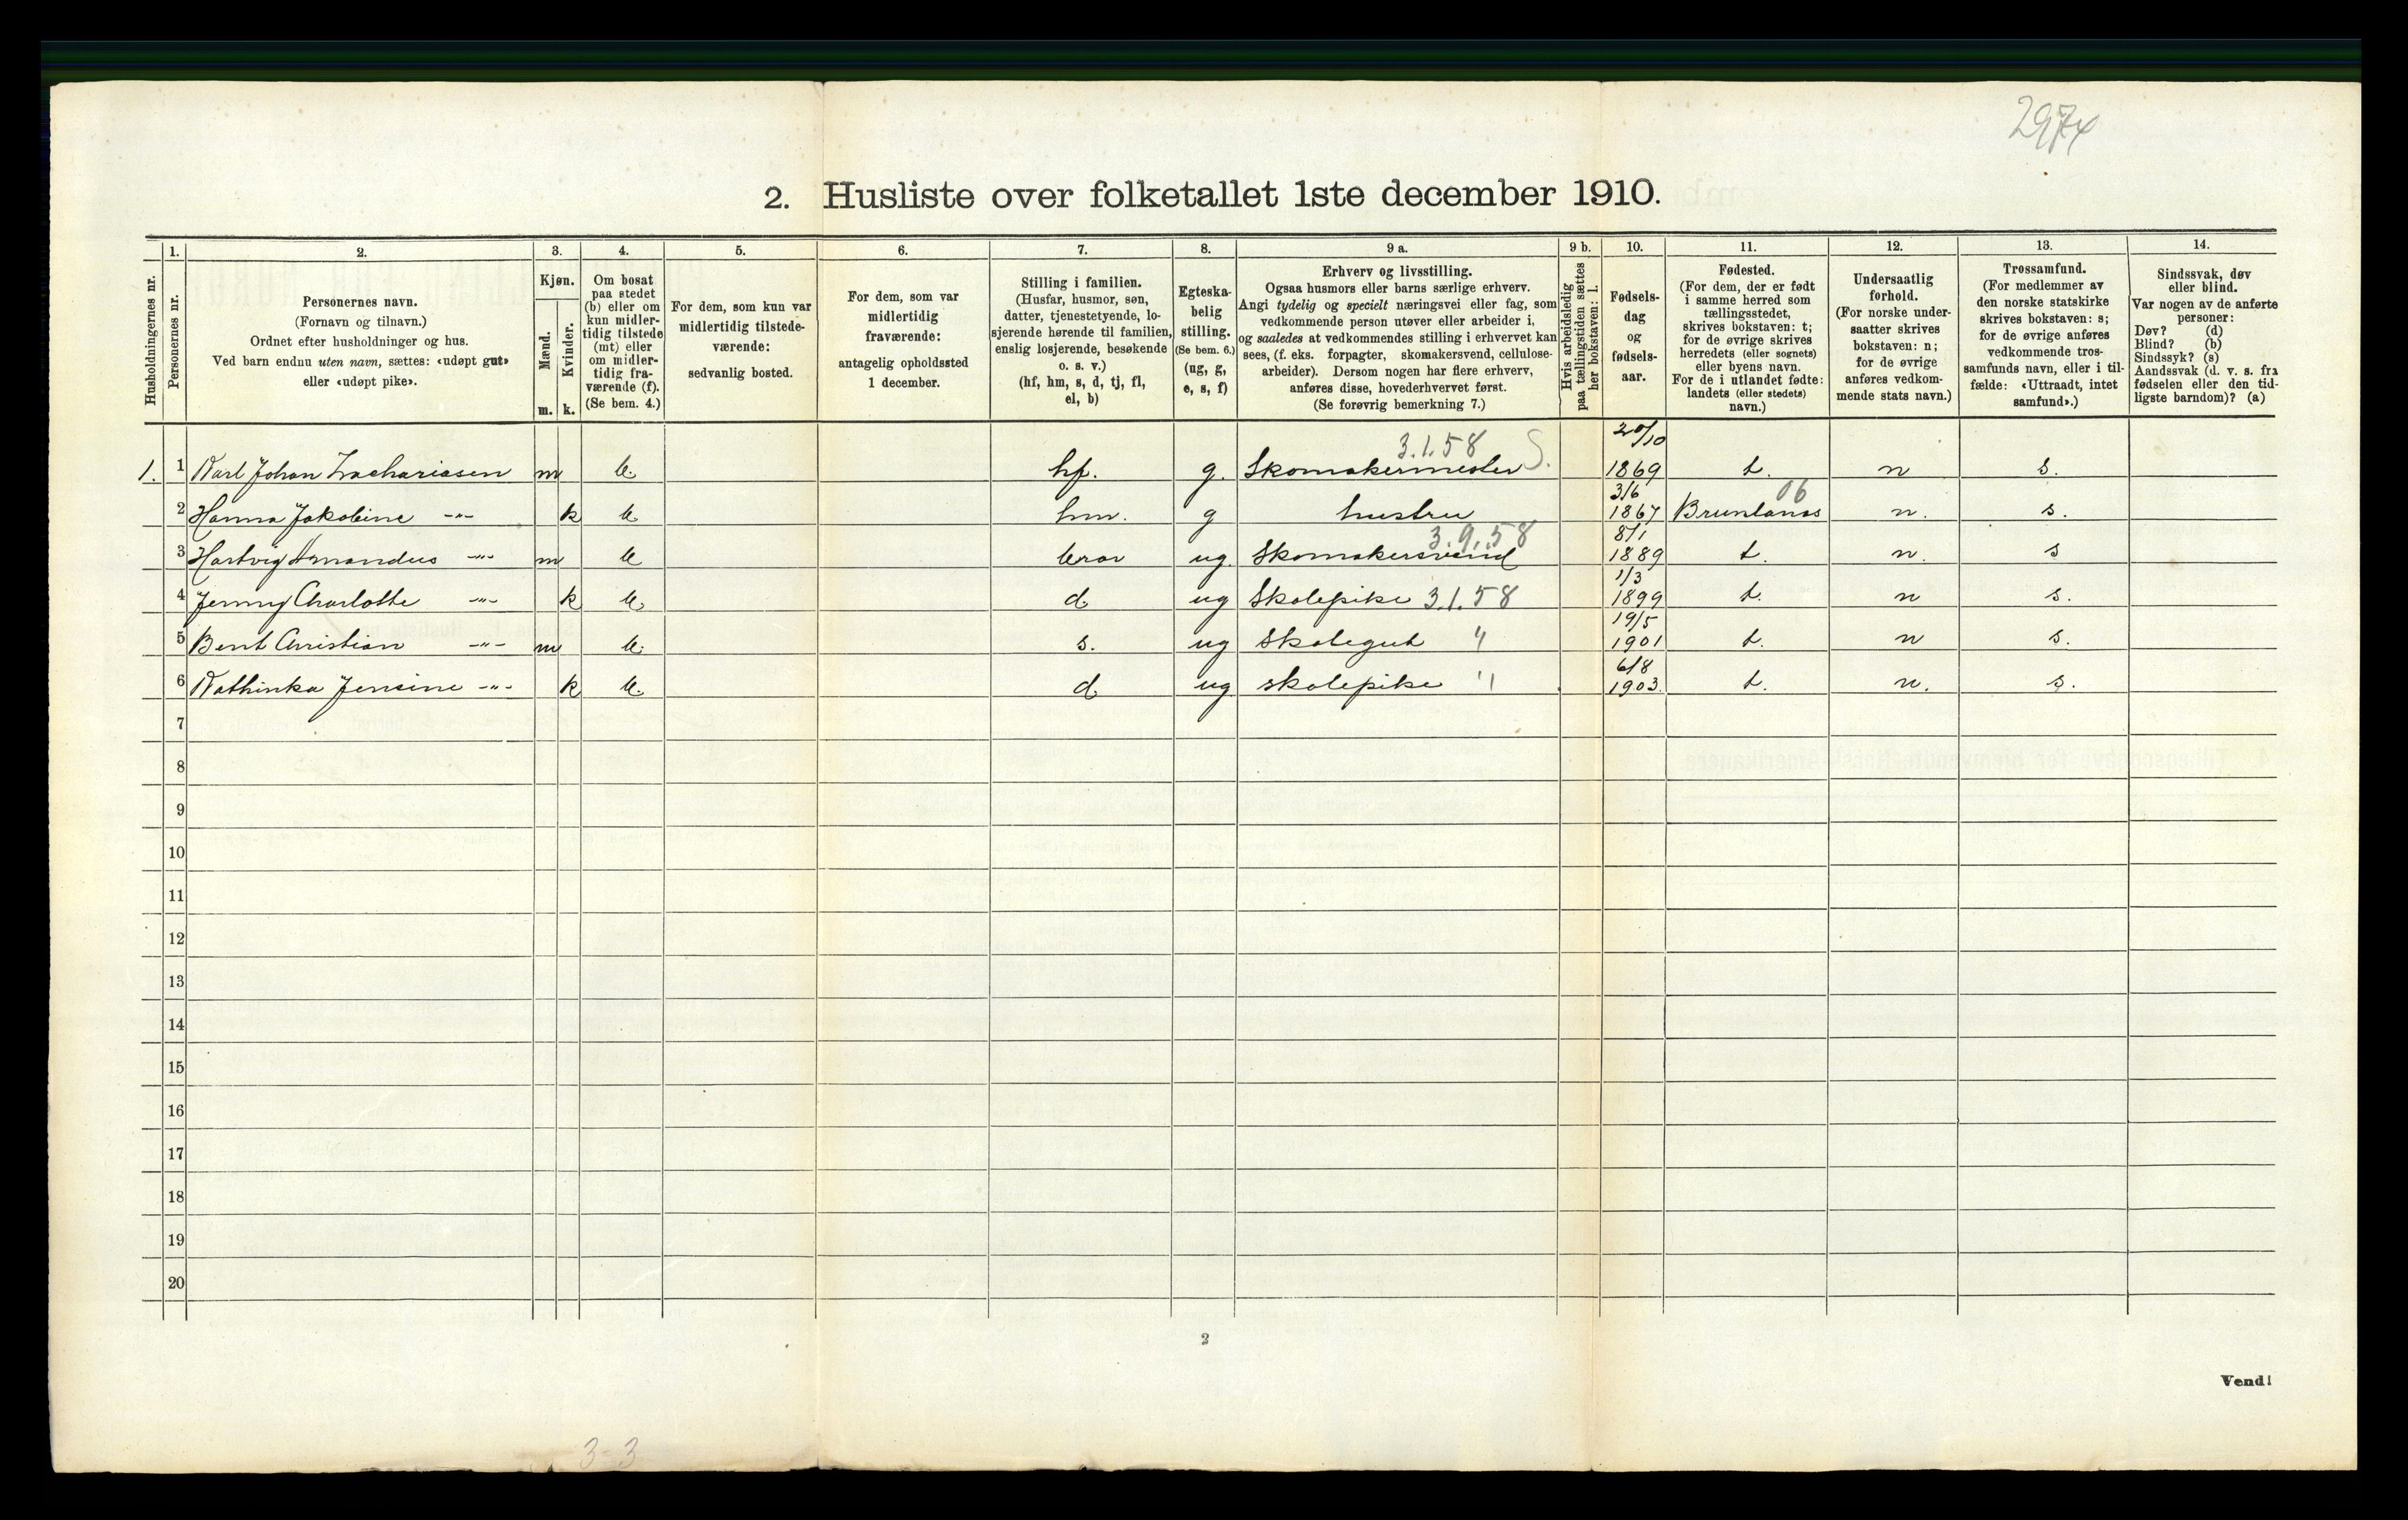 297x
2. Husliste over folketallet 1ste december 1910.
Husholdningernes nr.
1.
Personernes nr.
2.
Personernes navn.
(Fornavn og tilnavn.)
Ordnet efter husholdninger og hus.
Ved barn endnu uten navn, sættes: «udøpt gut»
eller «udøpt pike».
3.
Kjøn.
Mænd.
Kvinder.
m. k.
4.
Om bosat
paa stedet
(b) eller om
kun midler-
tidig tilstede
(mt) eller
om midler-
tidig fra-
værende (f).
(Se bem. 4.)
5.
For dem, som kun var
midlertidig tilstede-
værende:
sedvanlig bosted.
6.
For dem, som var
midlertidig
fraværende:
antagelig opholdssted
1 december.
7.
Stilling i familien.
(Husfar, husmor, søn,
datter, tjenestetyende, lo-
sjerende hørende til familien,
enslig losjerende, besøkende
o. s. v.)
(hf, hm, s, d, tj, fl,
el, b)
8.
Egteska-
belig
stilling.
(Se bem. 6.)
(ug, g,
e, s, f)
9 a.
Erhverv og livsstilling.
Ogsaa husmors eller barns særlige erhverv.
Angi tydelig og specielt næringsvei eller fag, som
vedkommende person utøver eller arbeider i,
og saaledes at vedkommendes stilling i erhvervet kan
sees, (f. eks. forpagter, skomakersvend, cellulose-
arbeider). Dersom nogen har flere erhverv,
anføres disse, hovederhvervet først.
(Se forøvrig bemerkning 7.)
9 b.
Hvis arbeidsledig
paa tællingstiden sættes
her bokstaven: l.
10.
Fødsels-
dag
og
fødsels-
aar.
11.
Fødested.
(For dem, der er født
i samme herred som
tællingsstedet,
skrives bokstaven: t;
for de øvrige skrives
herredets (eller sognets)
eller byens navn.
For de i utlandet fødte:
landets (eller stedets)
navn.)
12.
Undersaatlig
forhold.
(For norske under-
saatter skrives
bokstaven: n;
for de øvrige
anføres vedkom-
mende stats navn.)
13.
Trossamfund.
(For medlemmer av
den norske statskirke
skrives bokstaven: s;
for de øvrige anføres
vedkommende tros-
samfunds navn, eller i til-
fælde: «Uttraadt, intet
samfund».)
14.
Sindssvak, døv
eller blind.
Var nogen av de anførte
personer:
Døv? (d)
Blind? (b)
Sindssyk? (s)
Aandssvak (d. v. s. fra
fødselen eller den tid-
ligste barndom)? (a)
3.1.58 S. 20/10
1. 1 Karl Johan Zachariasen m b. hf. g. Skomakermester 1869 t. n s.
3/6 06
2 Hanna Jakobine -"- k b hm. g hustru 1867 Brunlanæs n. s.
3.9.58 8/1
3 Hartvig Amandus -"- m b bror ug. Skomakersvend 1889 t. n. s
1/3
4 Jenny Charlotte -"- k b. d ug Skolepike 3.1.58 1899 t. n s.
19/5
5 Bent Christian -"- m b. s. ug Skolegut " 1901 t. n s.
6/8
6 Kathinka Jensine -"- k b. d ug skolepike " 1903. t. n. s.
7
8
9
10
11
12
13
14
15
16
17
18
19
20
2
Vend!
3-3